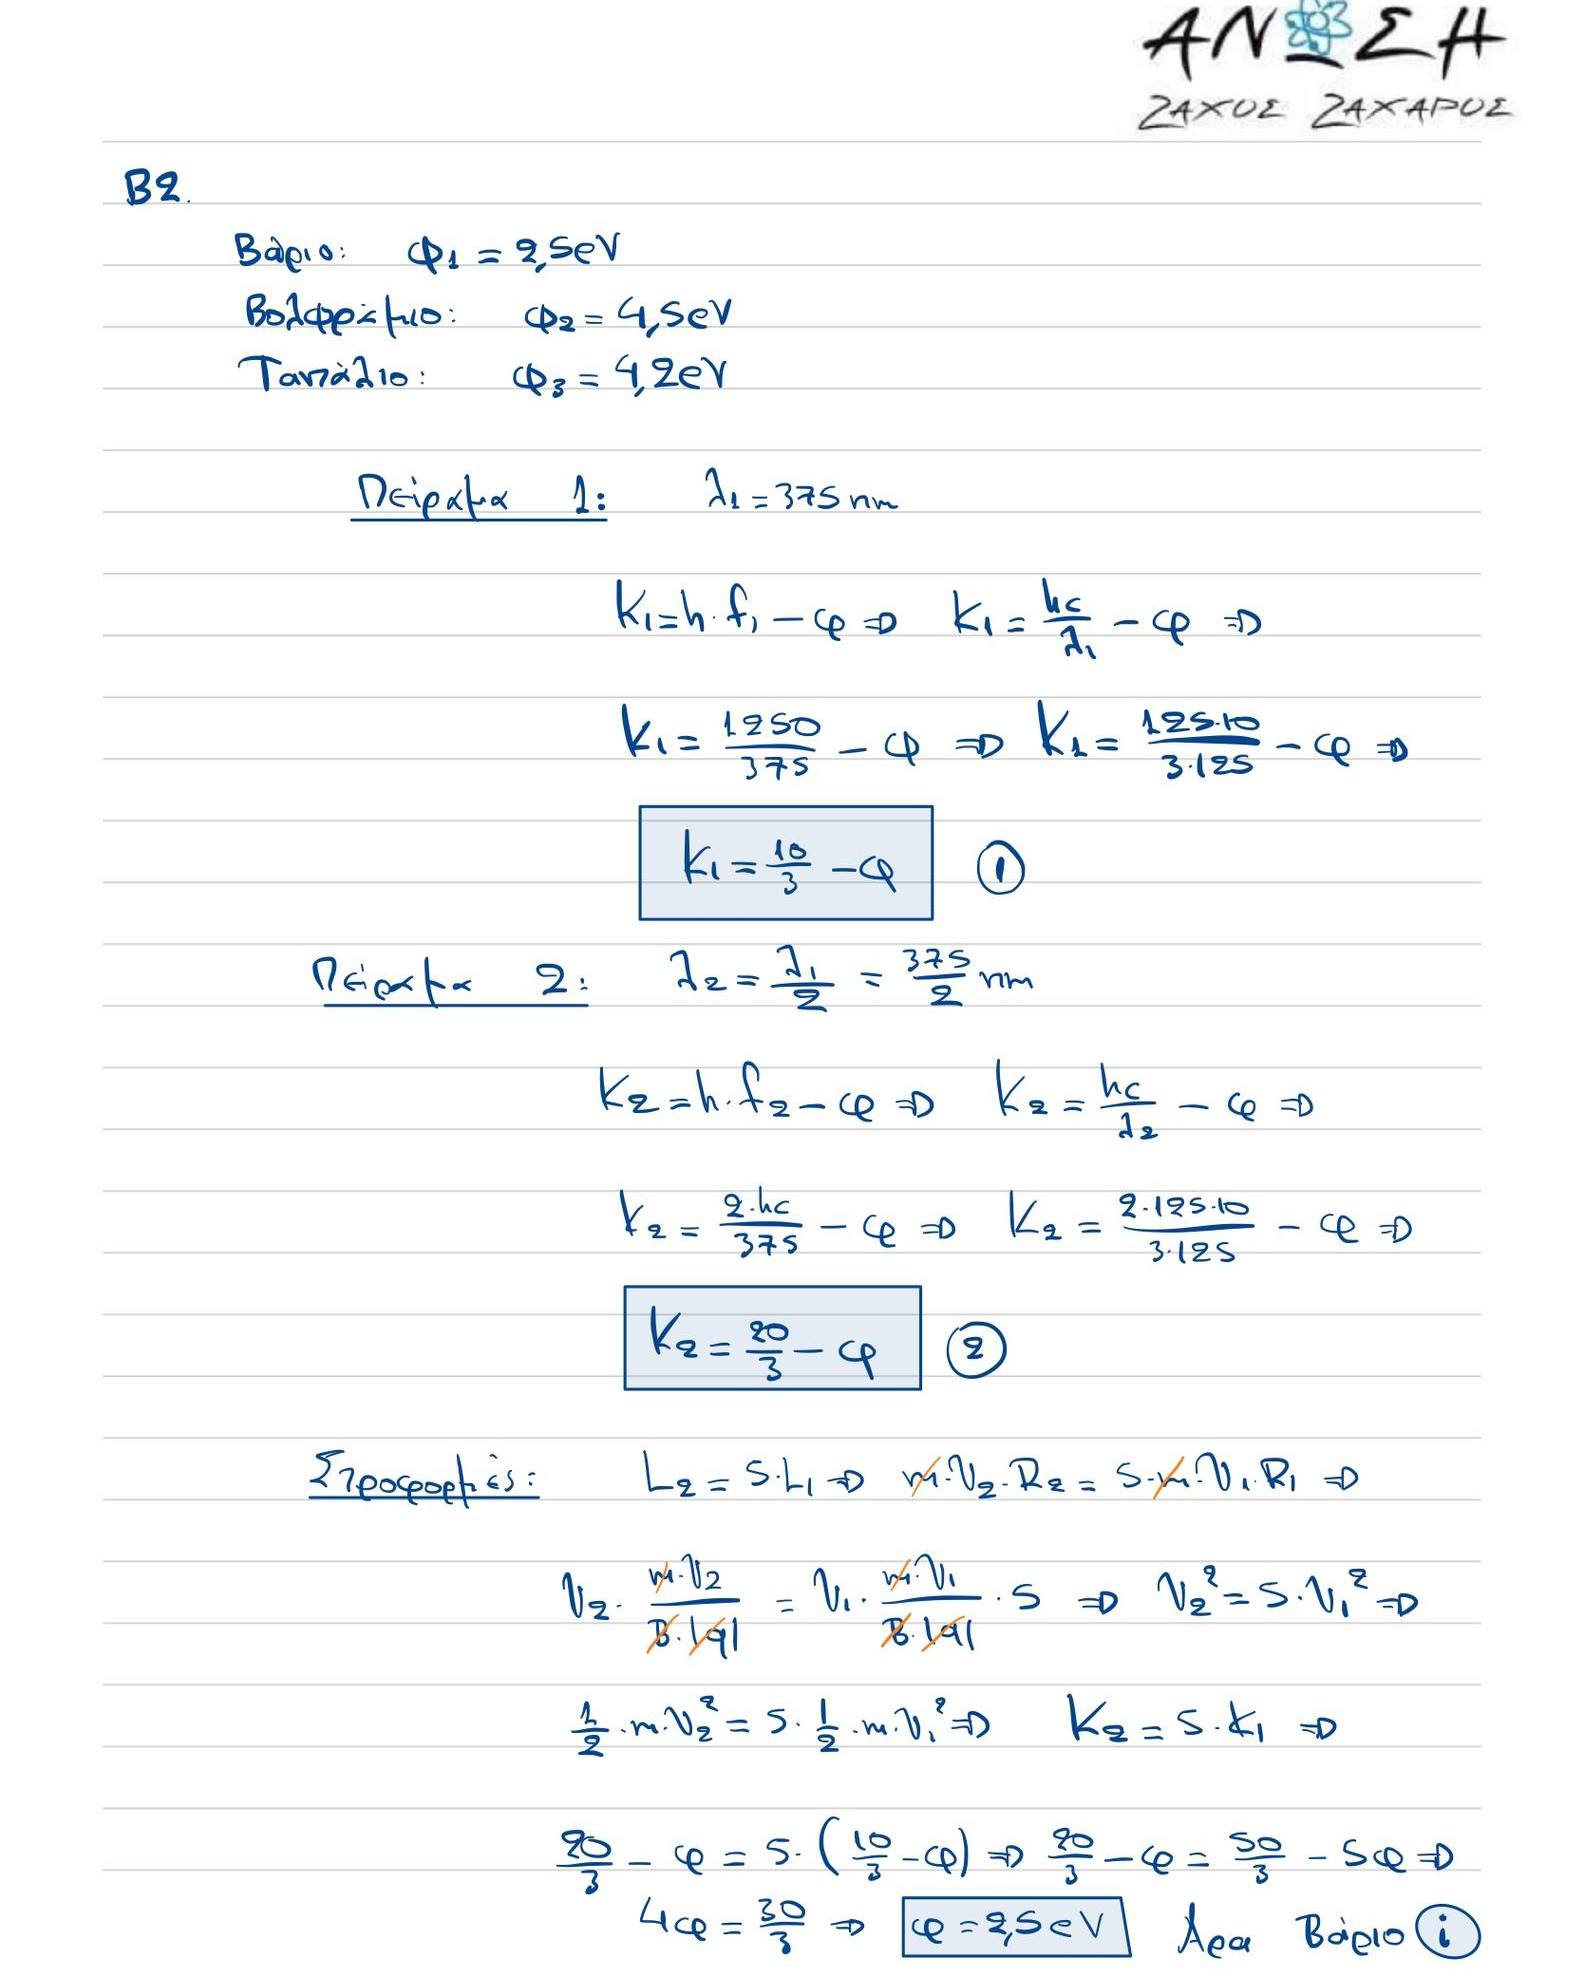 ΑΝΩΣΗ
ΖΑΧΟΣ ΖΑΧΑΡΟΣ
Β2.
Βάριο: φ₁ = 2,5eV
Βολφράμιο: φ₂ = 4,5eV
Ταντάλιο: φ₃ = 4,2eV
Πείραμα 1: λ₁ = 375 nm
K₁ = h·f₁ - φ ⇒ K₁ = hc/λ₁ - φ ⇒
K₁ = 1250/375 - φ ⇒ K₁ = 125·10/3·125 - φ ⇒
K₁ = 10/3 - φ ①
Πείραμα 2: λ₂ = λ₁/2 = 375/2 nm
K₂ = h·f₂ - φ ⇒ K₂ = hc/λ₂ - φ ⇒
K₂ = 2·hc/375 - φ ⇒ K₂ = 2·125·10/3·125 - φ ⇒
K₂ = 20/3 - φ ②
Στροφορμές: L₂ = 5·L₁ ⇒ m·V₂·R₂ = 5·m·V₁·R₁ ⇒
V₂·m·V₂/B·|q| = V₁·m·V₁/B·|q|·5 ⇒ V₂² = 5·V₁² ⇒
1/2·m·V₂² = 5·1/2·m·V₁² ⇒ K₂ = 5·K₁ ⇒
20/3 - φ = 5·(10/3 - φ) ⇒ 20/3 - φ = 50/3 - 5φ ⇒
4φ = 30/3 ⇒ φ = 2,5eV Άρα Βάριο i